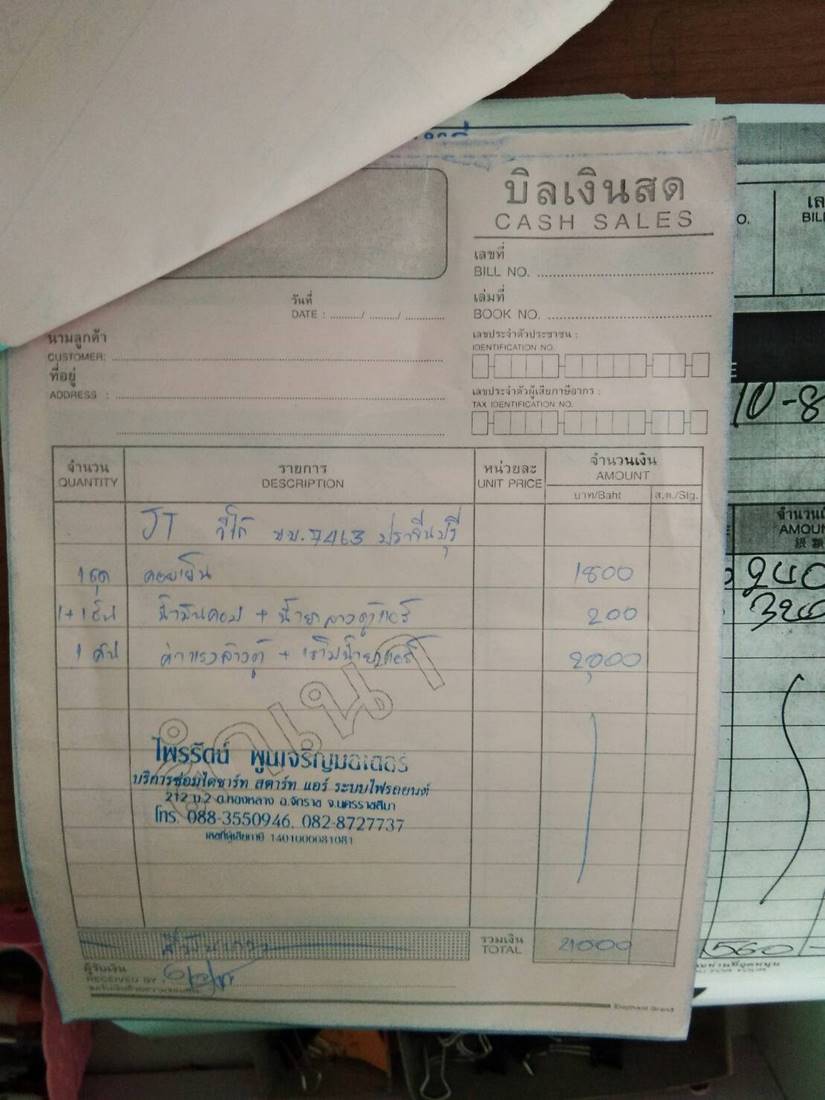 บิลเงินสด
CASH SALES
เลขที่
BILL NO.
วันที่
DATE : / / 
เล่มที่
BOOK NO.
นามลูกค้า
CUSTOMER:
เลขประจำตัวประชาชน :
IDENTIFICATION NO.
ที่อยู่
ADDRESS :
เลขประจำตัวผู้เสียภาษีอากร :
TAX IDENTIFICATION NO.
จำนวน รายการ หน่วยละ จำนวนเงิน
QUANTITY DESCRIPTION UNIT PRICE AMOUNT
บาท/Baht ส.ต./Stg.
วีโก้ 7463 ปราจีนบุรี
1 ชุด คอยเย็น 1800
น้ำมันคอม + น้ำยาล้างตู้แอร์ 200
1 คัน ค่าแรงล้างตู้ + เติมน้ำยาแอร์
สำเนา
ไพรรัตน์ พูนเจริญมอเตอร์
บริการซ่อมไดชาร์ท สตาร์ท แอร์ ระบบไฟรถยนต์
212 ม.2 ต.ทองหลาง อ.จักราช จ.นครราชสีมา
โทร. 088-3550946, 082-8727737
รวมเงิน
TOTAL
ผู้รับเงิน
RECEIVED BY
Elephant Brand
O.
BILL
10-8
จำนวนเงิน
AMOU
240
320
560